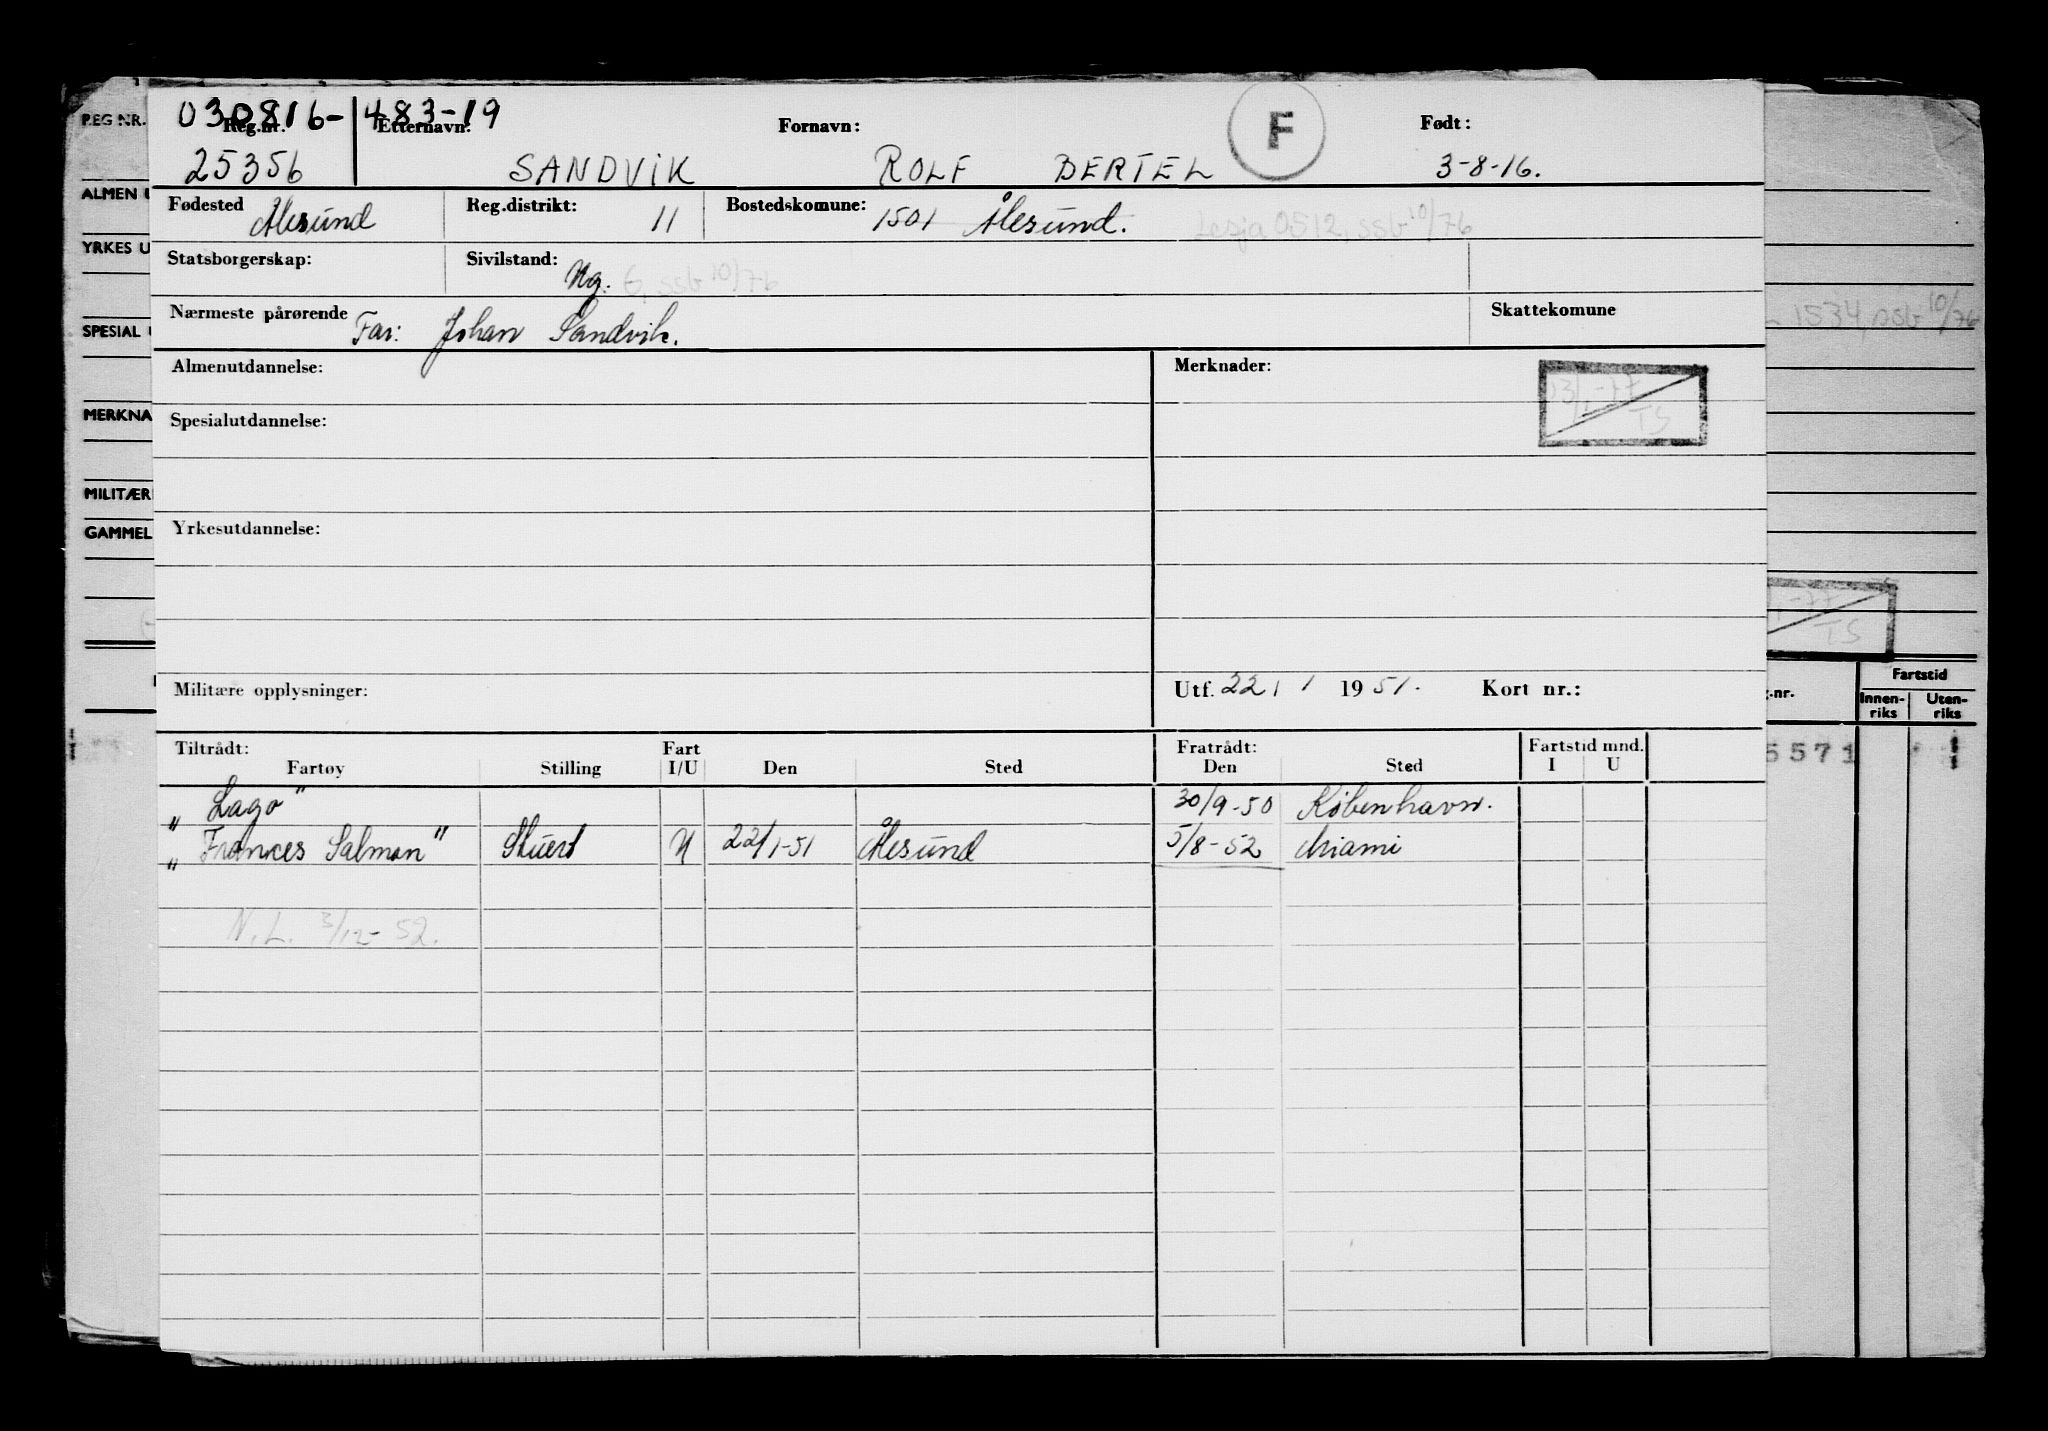 030816-483-19
REG NR. Reg.nr. Etternavn: Fornavn: F Født:
25356 SANDVIK ROLF BERTEL 3-8-16.
ALMEN U
Fødested Ålesund Reg.distrikt: 11 Bostedskomune: 1501 Ålesund. Lesja 0512, ssb 10/76
YRKES U
Statsborgerskap: Sivilstand: Ug. G, ssb 10/76
Nærmeste pårørende Far: Johan Sandvik. Skattekomune
SPECIAL U 1534, ssb 10/76
Almenutdannelse: Merknader:
13/1-77
TS
MERKNA
Spesialutdannelse:
MILITÆR
GAMMEL
Yrkesutdannelse:
-77
TS
Militære opplysninger: Utf. 22/1 1951. Kort nr.:
.nr. Fartstid
Innen-riks Uten-riks
Tiltrådt: Fart Fratrådt: Fartstid mnd.
Fartøy Stilling I/U Den Sted Den Sted I U
5571
"Lago" 30/9-50 København.
"Frances Salman" Stuert U 22/1-51 Ålesund 5/8-52 Miami
N.L. 3/12-52.